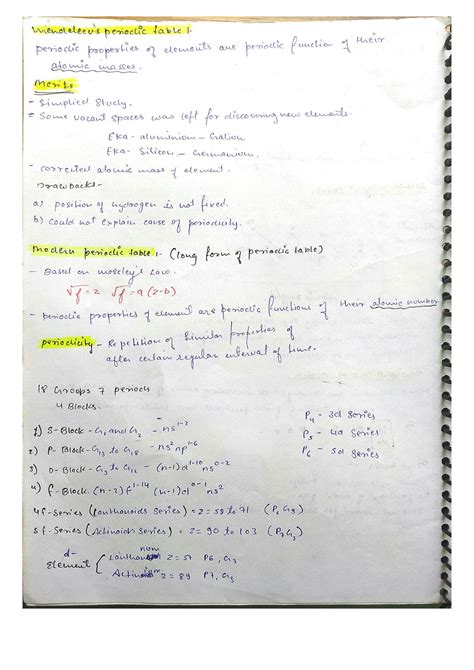 Mendeleev's periodic table 1.
periodic properties of elements are periodic function of their
atomic masses.
Merits
- Simplied Study.
- Some vacant spaces was left for discovering new elements.
EKa- aluminium - Galium
EKa- Silicon - Germanium.
- corrected atomic mass of element.
Drawbacks-
a) position of hydrogen is not fixed.
b) Could not explain cause of periodicity.
Modern periodic table 1. (long form of periodic table)
- Based on moseley's Law.
√f = z √f = a (z-b)
- periodic properties of element are periodic functions of their atomic number
periodicity - Repetition of Similar properties of
after certain regular interval of time.
18 Groups 7 periods
4 Blocks
P4 - 3d Series
P5 - 4d Series
P6 - 5d Series
1) S-Block - G1 and G2 - ns1-2
2) P- Block - G13 to G18 - ns2 np1-6
3) D- Block - G3 to G12 - (n-1)d1-10 ns0-2
4) f- Block. (n-2) f1-14 (n-1)d0-1 ns2
4f-Series (Lanthanoids Series) = Z=58 to 71 (P6 G3)
5f-Series (Actinoids Series) = Z= 90 to 103 (P7 G3)
d-
Element { Lanthanum Z = 57 P6, G3
Actinium Z = 89 P7, G3